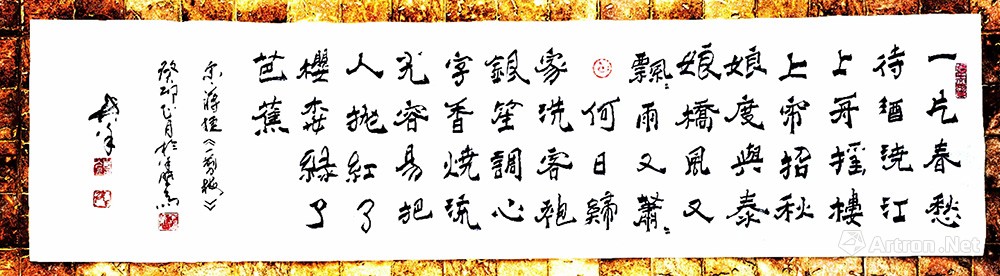 一片春愁
待酒浇江
上舟摇樓
上帘招秋
娘度與泰
娘橋風又
飄〻雨又蕭〻
何日歸
家洗客袍
銀笙調心
字香燒流
光容易把
人抛紅了
櫻桃緑了
芭蕉
宋蒋捷《一剪梅》
癸卯月於
Artron.Net